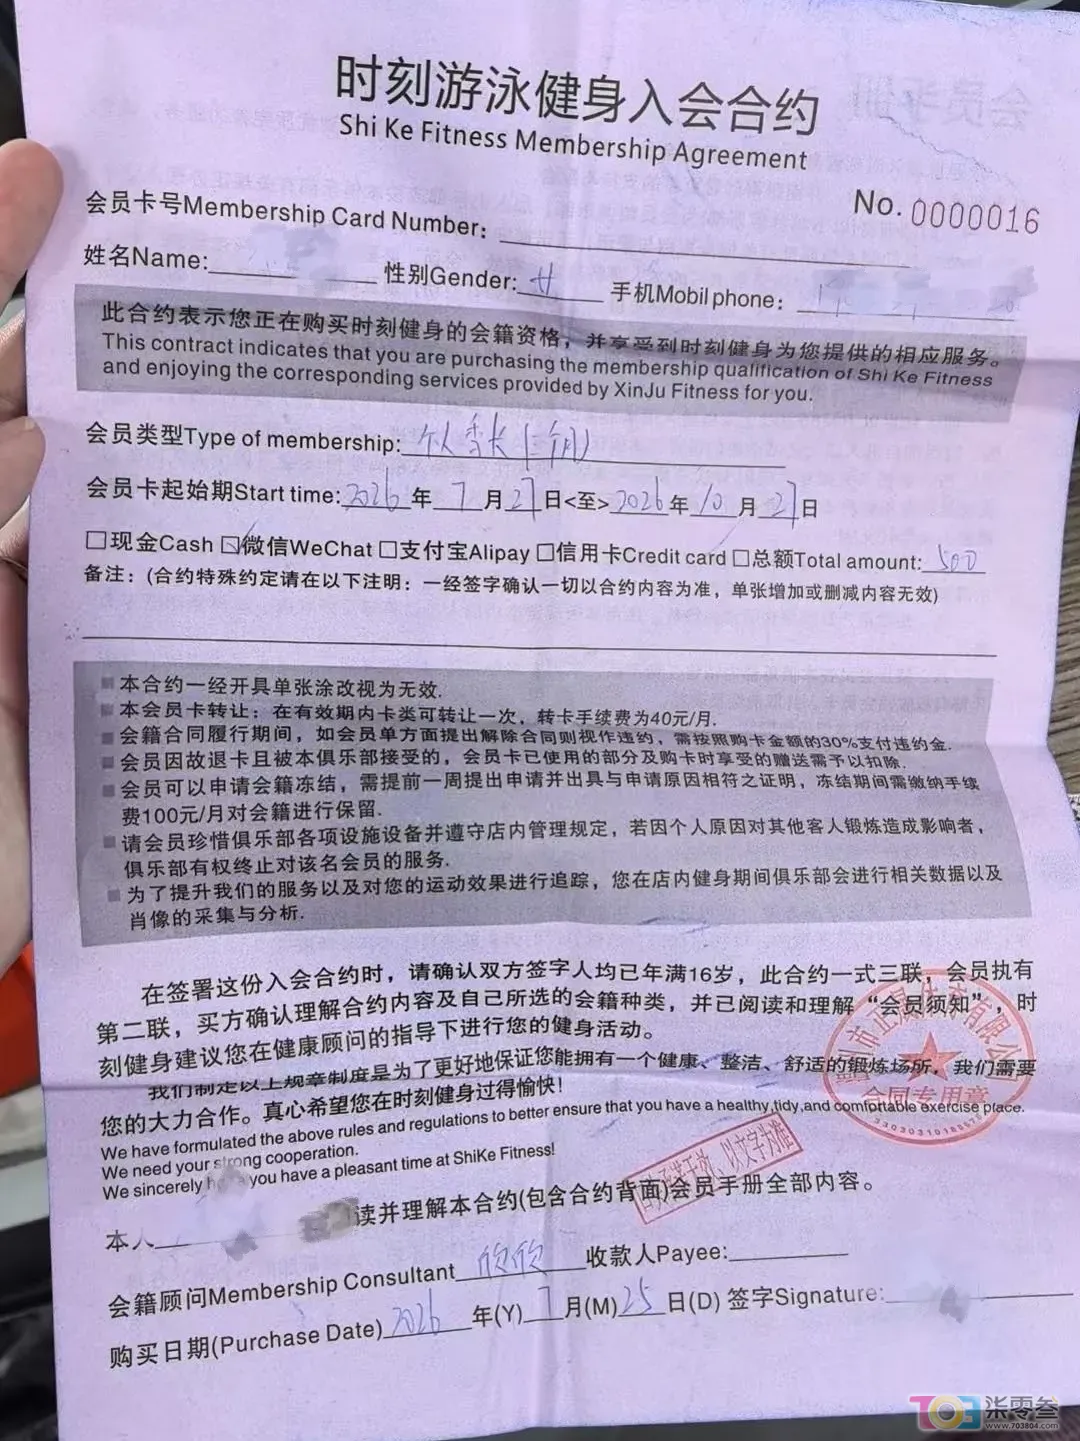 时刻游泳健身入会合约
Shi Ke Fitness Membership Agreement
No. 0000016
会员卡号Membership Card Number:
姓名Name: 性别Gender: 手机Mobil phone:
此合约表示您正在购买时刻健身的会籍资格，并享受到时刻健身为您提供的相应服务。
This contract indicates that you are purchasing the membership qualification of Shi Ke Fitness
and enjoying the corresponding services provided by XinJu Fitness for you.
会员类型Type of membership: 个人
会员卡起始期Start time: 2026年 7月27日<至>2026年10月27日
□现金Cash ☑微信WeChat □支付宝Alipay □信用卡Credit card □总额Total amount: 500
备注：(合约特殊约定请在以下注明：一经签字确认一切以合约内容为准，单张增加或删减内容无效)
■本合约一经开具单张涂改视为无效.
■本会员卡转让：在有效期内卡类可转让一次，转卡手续费为40元/月.
■会籍合同履行期间，如会员单方面提出解除合同则视作违约，需按照购卡金额的30%支付违约金.
■会员因故退卡且被本俱乐部接受的，会员卡已使用的部分及购卡时享受的赠送需予以扣除.
■会员可以申请会籍冻结，需提前一周提出申请并出具与申请原因相符之证明，冻结期间需缴纳手续
费100元/月对会籍进行保留.
■请会员珍惜俱乐部各项设施设备并遵守店内管理规定，若因个人原因对其他客人锻炼造成影响者，
俱乐部有权终止对该名会员的服务.
■为了提升我们的服务以及对您的运动效果进行追踪，您在店内健身期间俱乐部会进行相关数据以及
肖像的采集与分析.
在签署这份入会合约时，请确认双方签字人均已年满16岁，此合约一式三联，会员执有
第二联，买方确认理解合约内容及自己所选的会籍种类，并已阅读和理解“会员须知”，时
刻健身建议您在健康顾问的指导下进行您的健身活动。
我们制定以上规章制度是为了更好地保证您能拥有一个健康、整洁、舒适的锻炼场所，我们需要
您的大力合作。真心希望您在时刻健身过得愉快！
合同专用章
We have formulated the above rules and regulations to better ensure that you have a healthy,tidy,and comfortable exercise place.
We need your strong cooperation.
We sincerely you have a pleasant time at ShiKe Fitness!
以文字为准
本人 读并理解本合约(包含合约背面)会员手册全部内容。
会籍顾问Membership Consultant 欣欣 收款人Payee:
购买日期(Purchase Date) 2026 年(Y) 7 月(M) 25 日(D) 签字Signature:
703 柒零叁
www.703804.com